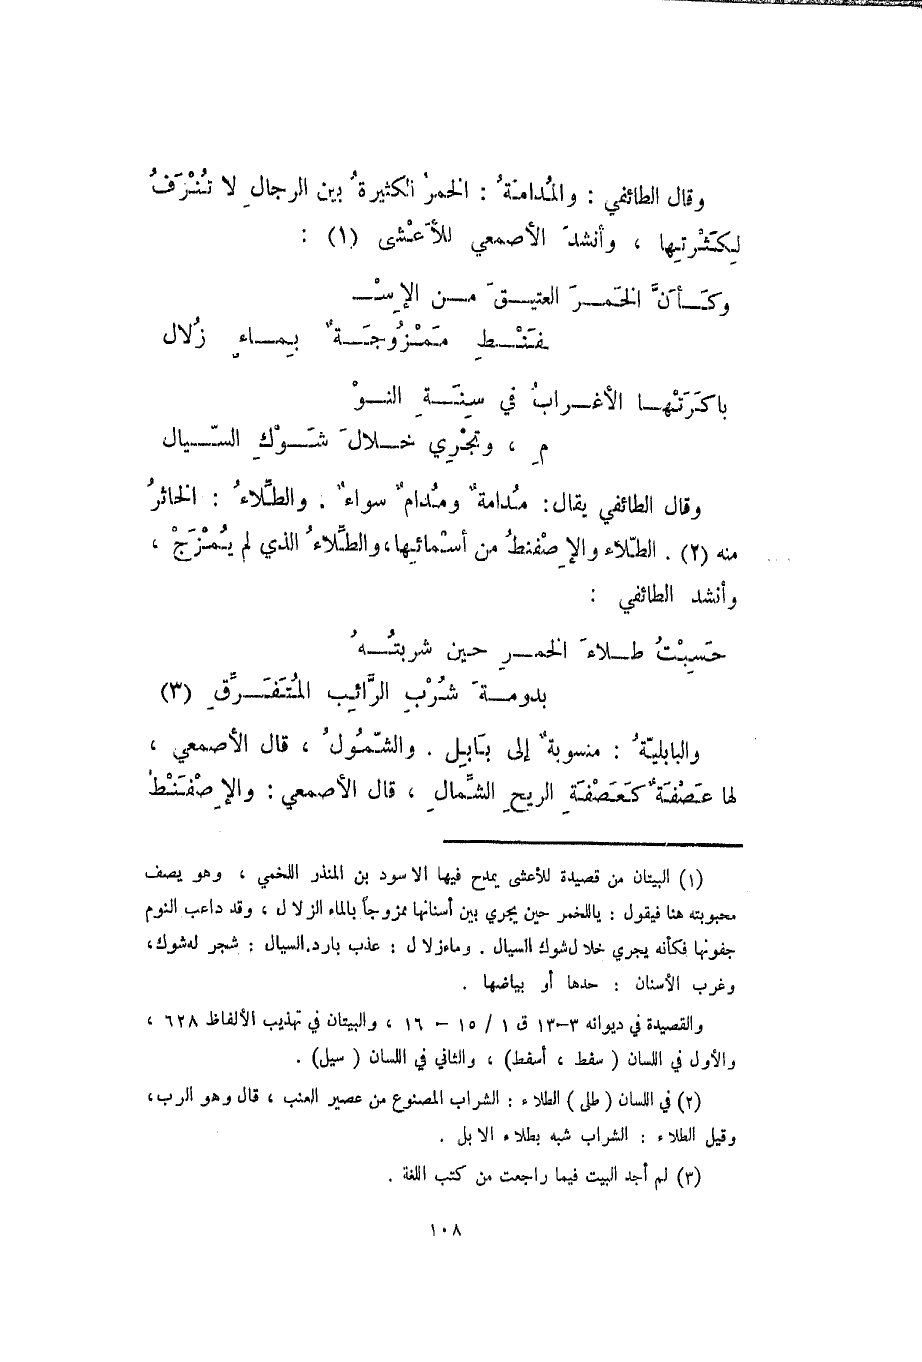 وقال الطائفي : والمُدامَةُ : الخمرُ الكثيرةُ بين الرجالِ لا تُنْزَفُ
لِكَثْرتِها ، وأنشدَ الأصمعي للأَعْشى (١) :
وكــأنَّ الخَمــرَ العتيــقَ مــن الإسْــ
ـفَنْــطِ مَمْــزُوجَــةٌ بِمــاءٍ زُلال
باكَرَتْهــا الأغــرابُ في سِنَــةِ النــوْ
مِ ، وتَجْرِي خــلالَ شَــوْكِ السّــيال
وقال الطائفي يقال: مُدامةٌ ومُدامٌ سواءٌ . والطِّلاءُ : الخاثرُ
منه (٢) . الطّلاء والإِصْفنطُ من أسْمائِها، والطِّلاءُ الذي لم يُمْزَجْ ،
وأنشد الطائفي :
حَسِبْتُ طــلاءَ الخمــرِ حــين شربتُــهُ
بدومــةَ شُرْبِ الرَّائبِ المُتَفَــرِّقِ (٣)
والبابليّةُ : منسوبةٌ إلى بَابِل . والشّمُولُ ، قال الأصمعي ،
لها عَصْفَةٌ كَعَصْفَةِ الريحِ الشَّمالِ ، قال الأصمعي : والإِصْفَنْطُ
(١) البيتان من قصيدة للأعشى يمدح فيها الاسود بن المنذر اللخمي ، وهو يصف
محبوبته هنا فيقول : ياللخمر حين يجري بين أسنانها ممزوجاً بالماء الزلال ، وقد داعب النوم
جفونها فكأنه يجري خلال شوك السيال . وماء زلال : عذب بارد. السيال : شجر له شوك،
وغرب الأسنان : حدها أو بياضها .
والقصيدة في ديوانه ٣–١٣ ق ١ / ١٥ – ١٦ ، والبيتان في تهذيب الألفاظ ٦٢٨ ،
والأول في اللسان ( سقط ، أسقط) ، والثاني في اللسان ( سيل) .
(٢) في اللسان ( طلى ) الطلاء : الشراب المصنوع من عصير العنب ، قال وهو الرب،
وقيل الطلاء : الشراب شبه بطلاء الابل .
(٣) لم أجد البيت فيما راجعت من كتب اللغة .
١٠٨